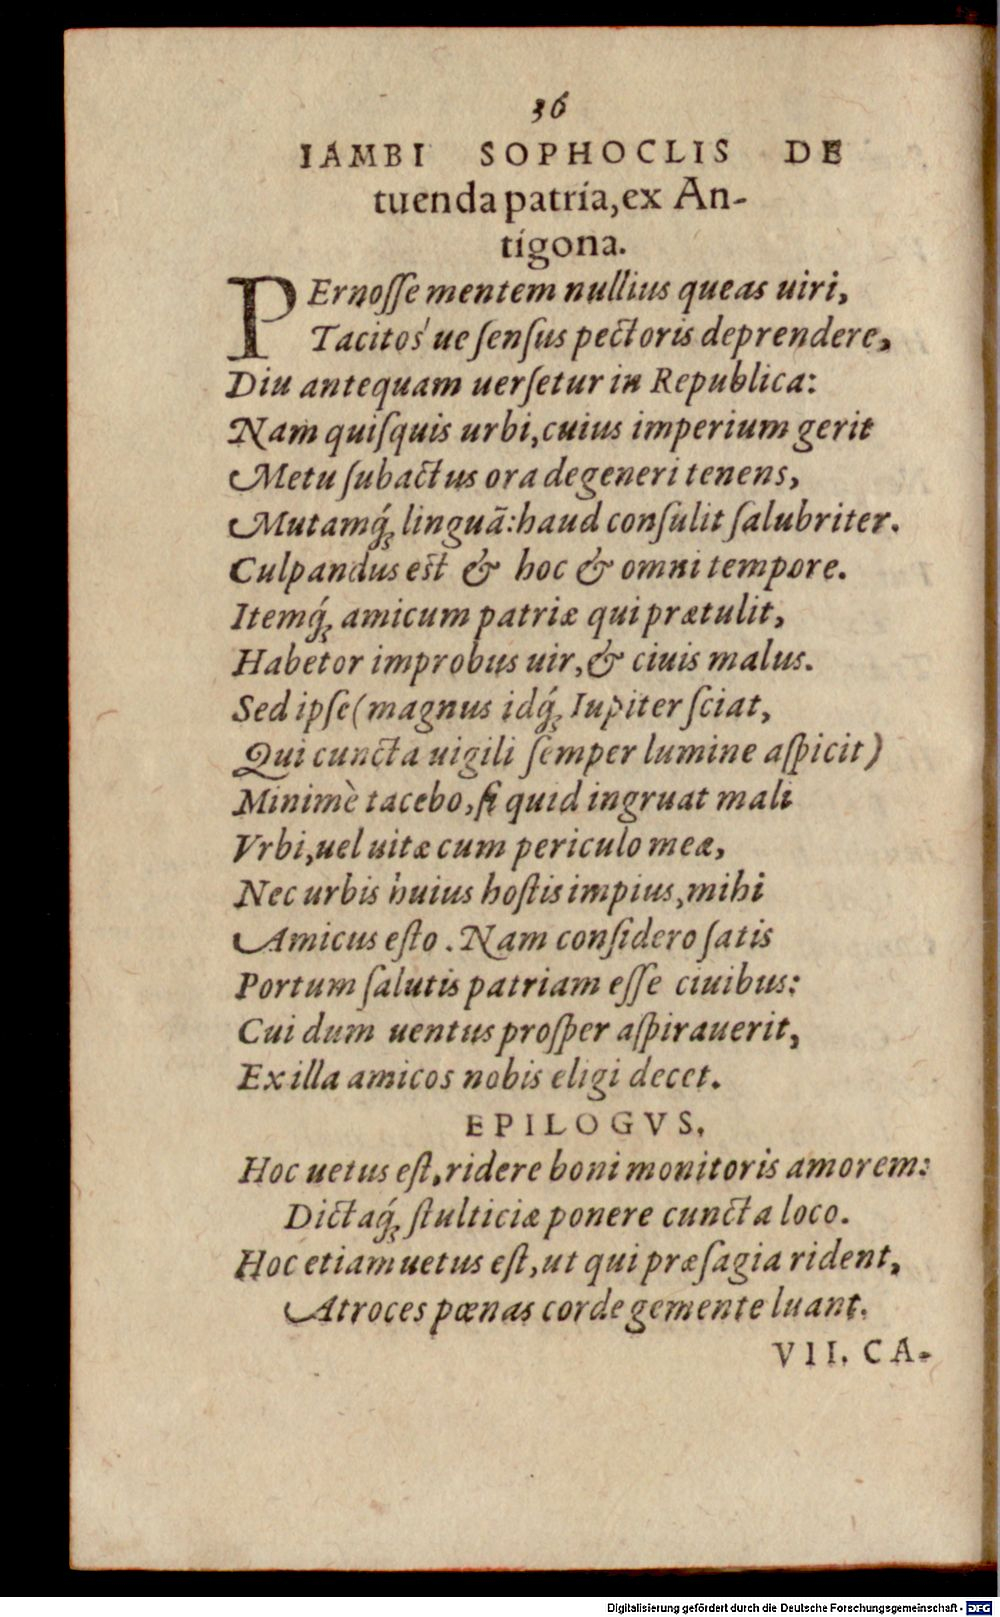 36
IAMBI SOPHOCLIS DE
tuenda patria, ex An-
tigona.
PErnoſſe mentem nullius queas uiri,
Tacitos' ue ſenſus pectoris deprendere,
Diu antequam uerſetur in Republica:
Nam quiſquis urbi, cuius imperium gerit
Metu ſubactus ora degeneri tenens,
Mutamq́; linguã: haud conſulit ſalubriter.
Culpandus est & hoc & omni tempore.
Itemq́; amicum patriæ qui prætulit,
Habetor improbus uir, & ciuis malus.
Sed ipſe (magnus idq́; Iupiter ſciat,
Qui cuncta uigili ſemper lumine aſpicit)
Minimè tacebo, ſi quid ingruat mali
Vrbi, uel uitæ cum periculo meæ,
Nec urbis huius hoſtis impius, mihi
Amicus eſto. Nam conſidero ſatis
Portum ſalutis patriam eſſe ciuibus:
Cui dum uentus proſper aſpirauerit,
Ex illa amicos nobis eligi decet.
EPILOGVS.
Hoc uetus eſt, ridere boni monitoris amorem:
Dictaq́; ſtulticiæ ponere cuncta loco.
Hoc etiam uetus eſt, ut qui præſagia rident,
Atroces pœnas corde gemente luant.
VII. CA-
Digitalisierung gefördert durch die Deutsche Forschungsgemeinschaft - DFG